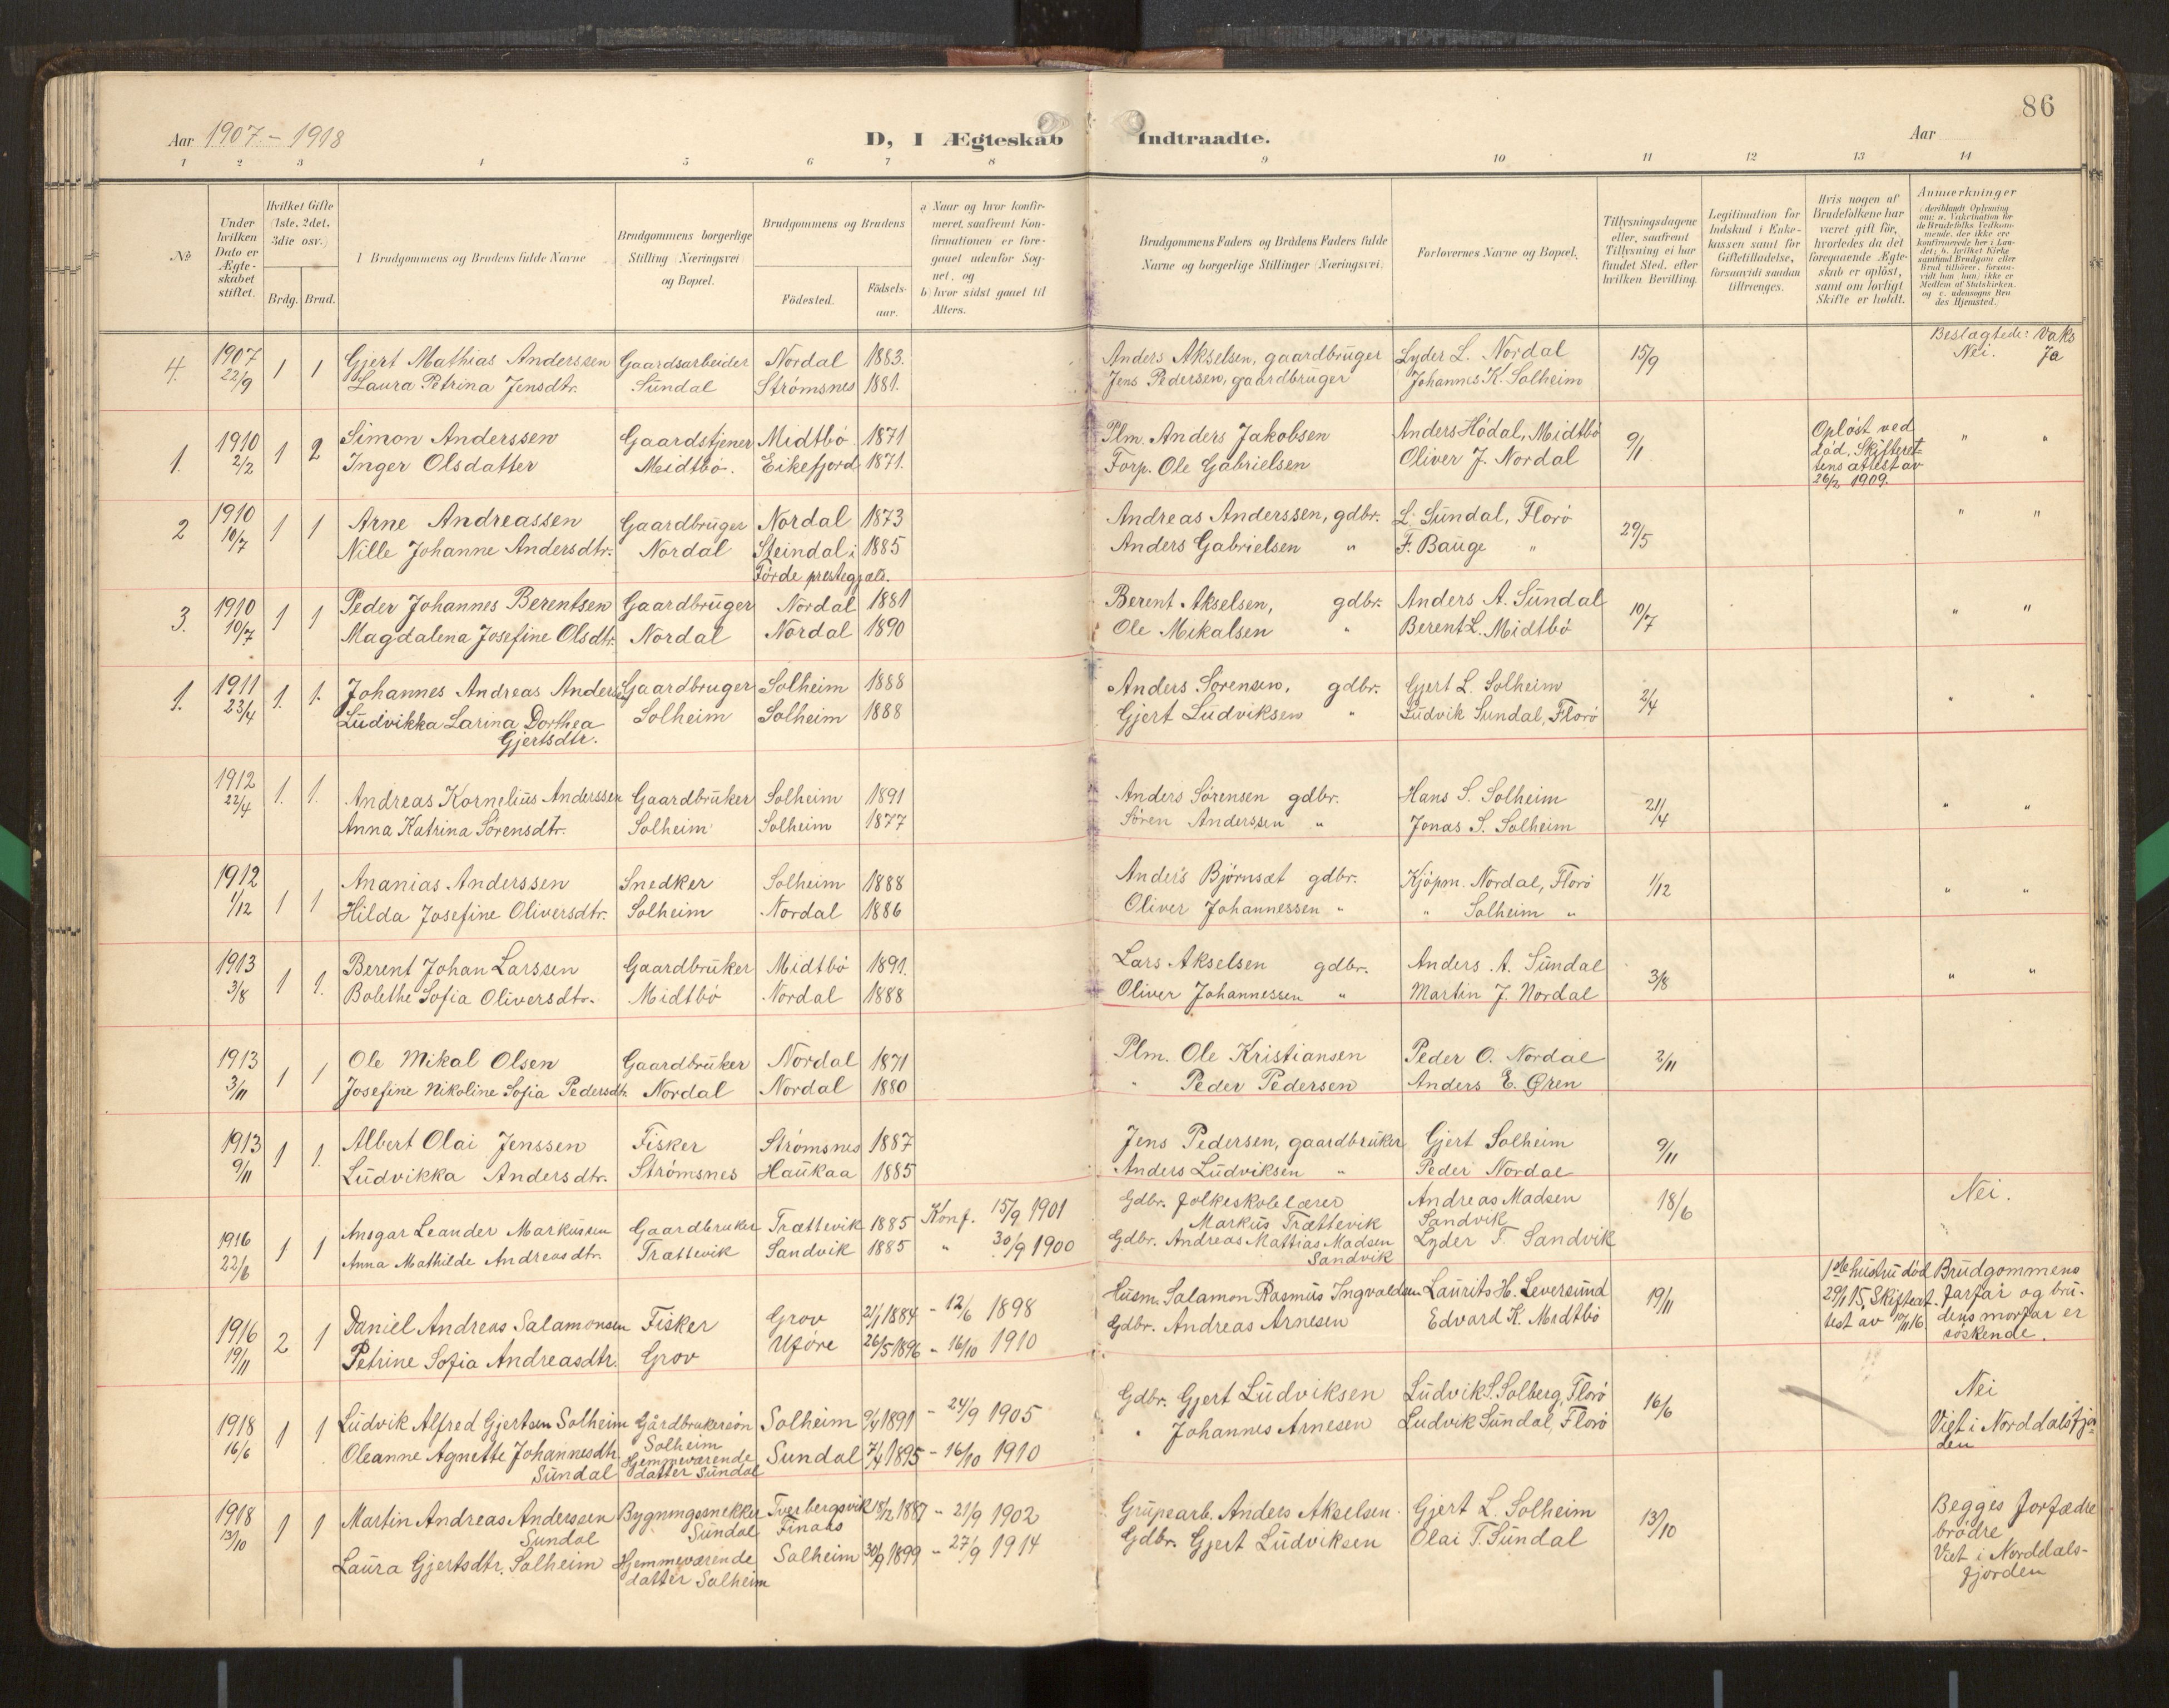 86
Aar 1907-1918
D, I Ægteskab Indtraadte.
Aar
1 2 3 4 5 6 7 8 9 10 11 12 13 14
No
Under hvilken Dato er Ægte-skabet stiftet.
Hvilket Gifte (1ste, 2det, 3die osv.)
Brdg. Brud.
Brudgommens og Brudens fulde Navne
Brudgommens borgerlige Stilling (Næringsvei) og Bopæl.
Brudgommens og Brudens
Födested.
Födsels-aar.
a) Naar og hvor konfir-meret, saafremt Kon-firmationen er fore-gaaet udenfor Sog-net, og
b) hvor sidst gaaet til Alters.
Brudgommens Faders og Brudens Faders fulde Navne og borgerlige Stillinger (Næringsvei)
Forlovernes Navne og Bopæl.
Tillysningsdagene eller, saafremt Tillysning ei har fundet Sted, efter hvilken Bevilling.
Legitimation for Indskud i Enke-kassen samt for Giftetilladelse, forsaavidt saadan tiltrænges.
Hvis nogen af Brudefolkene har været gift för, hvorledes da det foregaaende Ægte-skab er oplöst, samt om lovligt Skifte er holdt.
Anmærkninger
4. 1907 22/9 1 1 Gjert Mathias Anderssen Gaardsarbeider Nordal 1883. Anders Akselsen, gaardbruger Lyder L. Nordal 15/9 Beslægtede: Vaks
Laura Petrina Jensdtr. Sundal Strømsnes 1881. Jens Pedersen, gaardbruger Johannes K. Solheim Nei. Ja
1. 1910 2/2 1 2 Simon Anderssen Gaardstjener Midtbö 1871 Plm. Anders Jakobsen Anders Hödal, Midtbö 9/1 Oplöst ved " "
Inger Olsdatter Meidtbö. Eikefjord 1871. Forp. Ole Gabrielsen Oliver J. Nordal död. Skifteret-
tens attest av
26/2 1909.
2 1910 10/7 1 1 Arne Andreassen Gaardbruger Nordal 1873 Andreas Anderssen, gdbr. L. Sundal, Florö 29/5 " "
Nille Johanne Andersdtr. Nordal Steindal i 1885 Anders Gabrielsen " F. Bauge "
Förde prestegjæld.
3. 1910 10/7 1 1 Peder Johannes Berentsen Gaardbruger Nordal 1881 Berent Akselsen, gdbr. Anders A. Sundal 10/7 " "
Magdalena Josefine Olsdtr. Nordal Nordal 1890 Ole Mikalsen " Berent L. Midtbö
1. 1911 23/4 1. 1. Johannes Andreas Anderssen Gaardbruger Solheim 1888 Anders Sörensen, gdbr. Gjert L. Solheim 2/4 " "
Ludvikka Larina Dorthea Solheim Solheim 1888 Gjert Ludviksen " Ludvik Sundal, Florö
Gjertsdtr.
1912 22/4 1. 1. Andreas Kornelius Anderssen Gaardbruker Solheim 1891 Anders Sörensen gdbr. Hans S. Solheim 21/4 " "
Anna Katrina Sörensdtr. Solheim Solheim 1877 Sören Anderssen " Jonas S. Solheim
1912 1/12 1 1 Ananias Anderssen Snedker Solheim 1888 Anders Björnsæt gdbr. Kjöpm. Nordal, Florö 1/12 " "
Hilda Josefine Oliversdtr. Solheim Nordal 1886 Oliver Johannessen " " Solheim "
1913 3/8 1 1. Berent Johan Larssen Gaardbruker Midtbö 1891. Lars Akselsen gdbr. Anders A. Sundal 3/8 " "
Bolethe Sofia Oliversdtr. Midtbö Nordal 1888 Oliver Johannessen " Martin J. Nordal
1913 3/11 1 1 Ole Mikal Olsen Gaardbruker Nordal 1871 Plm. Ole Kristiansen Peder O. Nordal 2/11
Josefine Nikoline Sofia Pedersdtr. Nordal Nordal 1880 " Peder Pedersen Anders E. Øren
1913 9/11 1 1. Albert Olai Jenssen Fisker Strömsnes 1887 Jens Pedersen, gaardbruker Gjert Solheim 9/11
Ludvikka Andersdtr. Strömsnes Haukaa 1885 Anders Ludviksen " Peder Nordal
1916 22/6 1 1 Ansgar Leander Markussen Gaardbruker Trættevik 1885 Konf. 15/9 1901 Gdbr. Folkeskolelærer Andreas Madsen 18/6 Nei.
Markus Trættevik Sandvik
Anna Mathilde Andreasdtr. Trættevik Sandvik 1885 " 30/9 1900 Gdbr. Andreas Mattias Madsen Lyder T. Sandvik
Sandvik
1916 19/11 2 1 Daniel Andreas Salamonsen Fisker Grov 21/1 1884 - 12/6 1898 Husm. Salamon Rasmus Ingvaldsen Laurits H. Leversund 19/11 1ste hustru död Brudgommens
29/1 15, Skifteat- farfar og bru-
Petrine Sofia Andreasdtr. Grov Uföre 26/5 1896 - 16/10 1910 Gdbr. Andreas Arnesen Edvard K. Midtbö test av 10/11 16. dens morfar er
söskende.
1918 16/6 1 1 Ludvik Alfred Gjertsen Solheim Gårdbrukersön Solheim 9/4 1891 - 24/9 1905 Gdbr. Gjert Ludviksen Ludvik S. Solberg, Florö 16/6 Nei
Solheim
Oleanne Agnette Johannesdtr. Hjemmeværende Sundal 7/4 1895 - 16/10 1910 " Johannes Arnesen Ludvik Sundal, Florö Viet i Norddalsfjor-
Sundal datter Sundal den
1918 13/10 1 1 Martin Andreas Anderssen Bygningssnekker Tverbergsvik 18/2 1887 - 21/9 1902 Grubearb. Anders Akselsen Gjert L. Solheim 13/10 Begges forfædre
Sundal Sundal Finnås brödre
Laura Gjertsdtr. Solheim Hjemmeværende Solheim 30/9 1899 - 27/9 1914 Gdbr. Gjert Ludviksen Olai T. Sundal Viet i Norddals-
datter Solheim fjorden